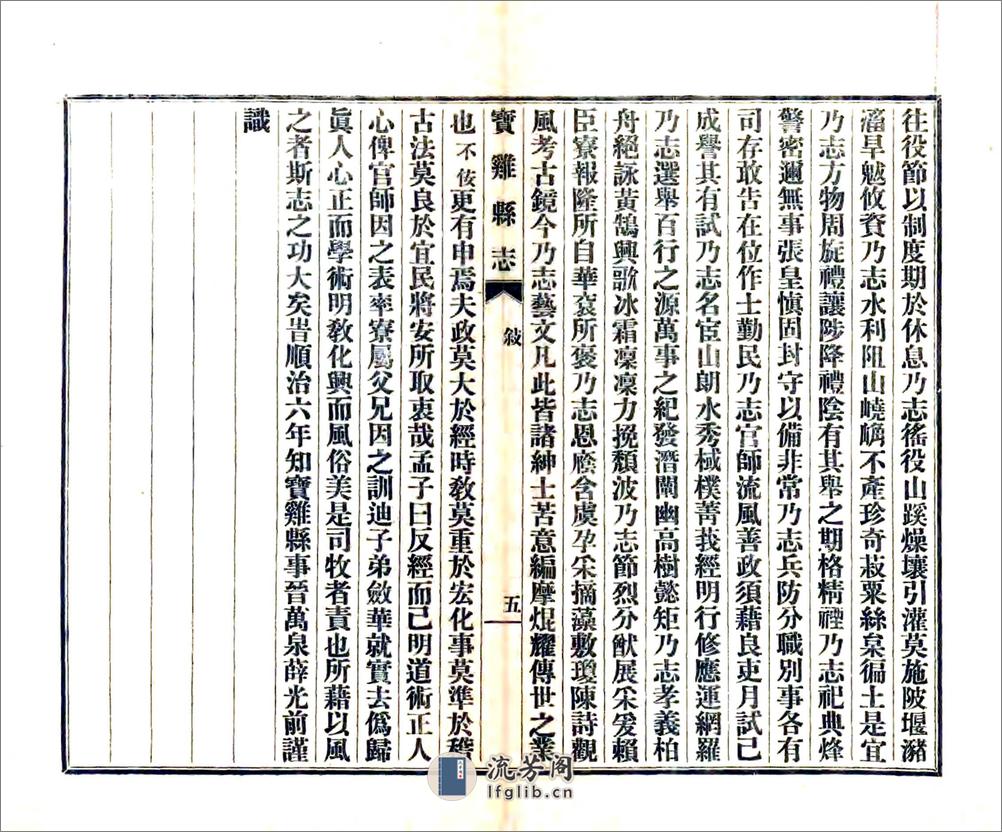 往役節以制度期於休息乃志徭役山蹊燥壤引灌莫施陂堰瀦
滀旱魃攸資乃志水利阻山嶢嶠不產珍奇菽粟絲枲徧土是宜
乃志方物周旋禮讓陟降禮陰有其舉之期格精禋乃志祀典烽
警密邇無事張皇愼固封守以備非常乃志兵防分職別事各有
司存敢告在位作士勤民乃志官師流風善政須藉良吏月試已
成譽其有試乃志名宦山朗水秀棫樸菁莪經明行修應運網羅
乃志選舉百行之源萬事之紀發潛闡幽高樹懿矩乃志孝義柏
舟絕詠黃鵠興歌冰霜凜凜力挽頹波乃志節烈分猷展采爰賴
臣寮報隆所自華袞所褒乃志恩廕含虞孕宋摘藻敷瓊陳詩觀
風考古鏡今乃志藝文凡此皆諸紳士苦意編摩焜耀傳世之業
寶雞縣志 敍 五
也不佞更有申焉夫政莫大於經時敎莫重於宏化事莫準於稽
古法莫良於宜民將安所取衷哉孟子曰反經而已明道術正人
心俾官師因之表率寮屬父兄因之訓迪子弟斂華就實去僞歸
眞人心正而學術明敎化興而風俗美是司牧者責也所藉以風
之者斯志之功大矣旹順治六年知寶雞縣事晉萬泉薛光前謹
識
流芳阁
lfglib.cn